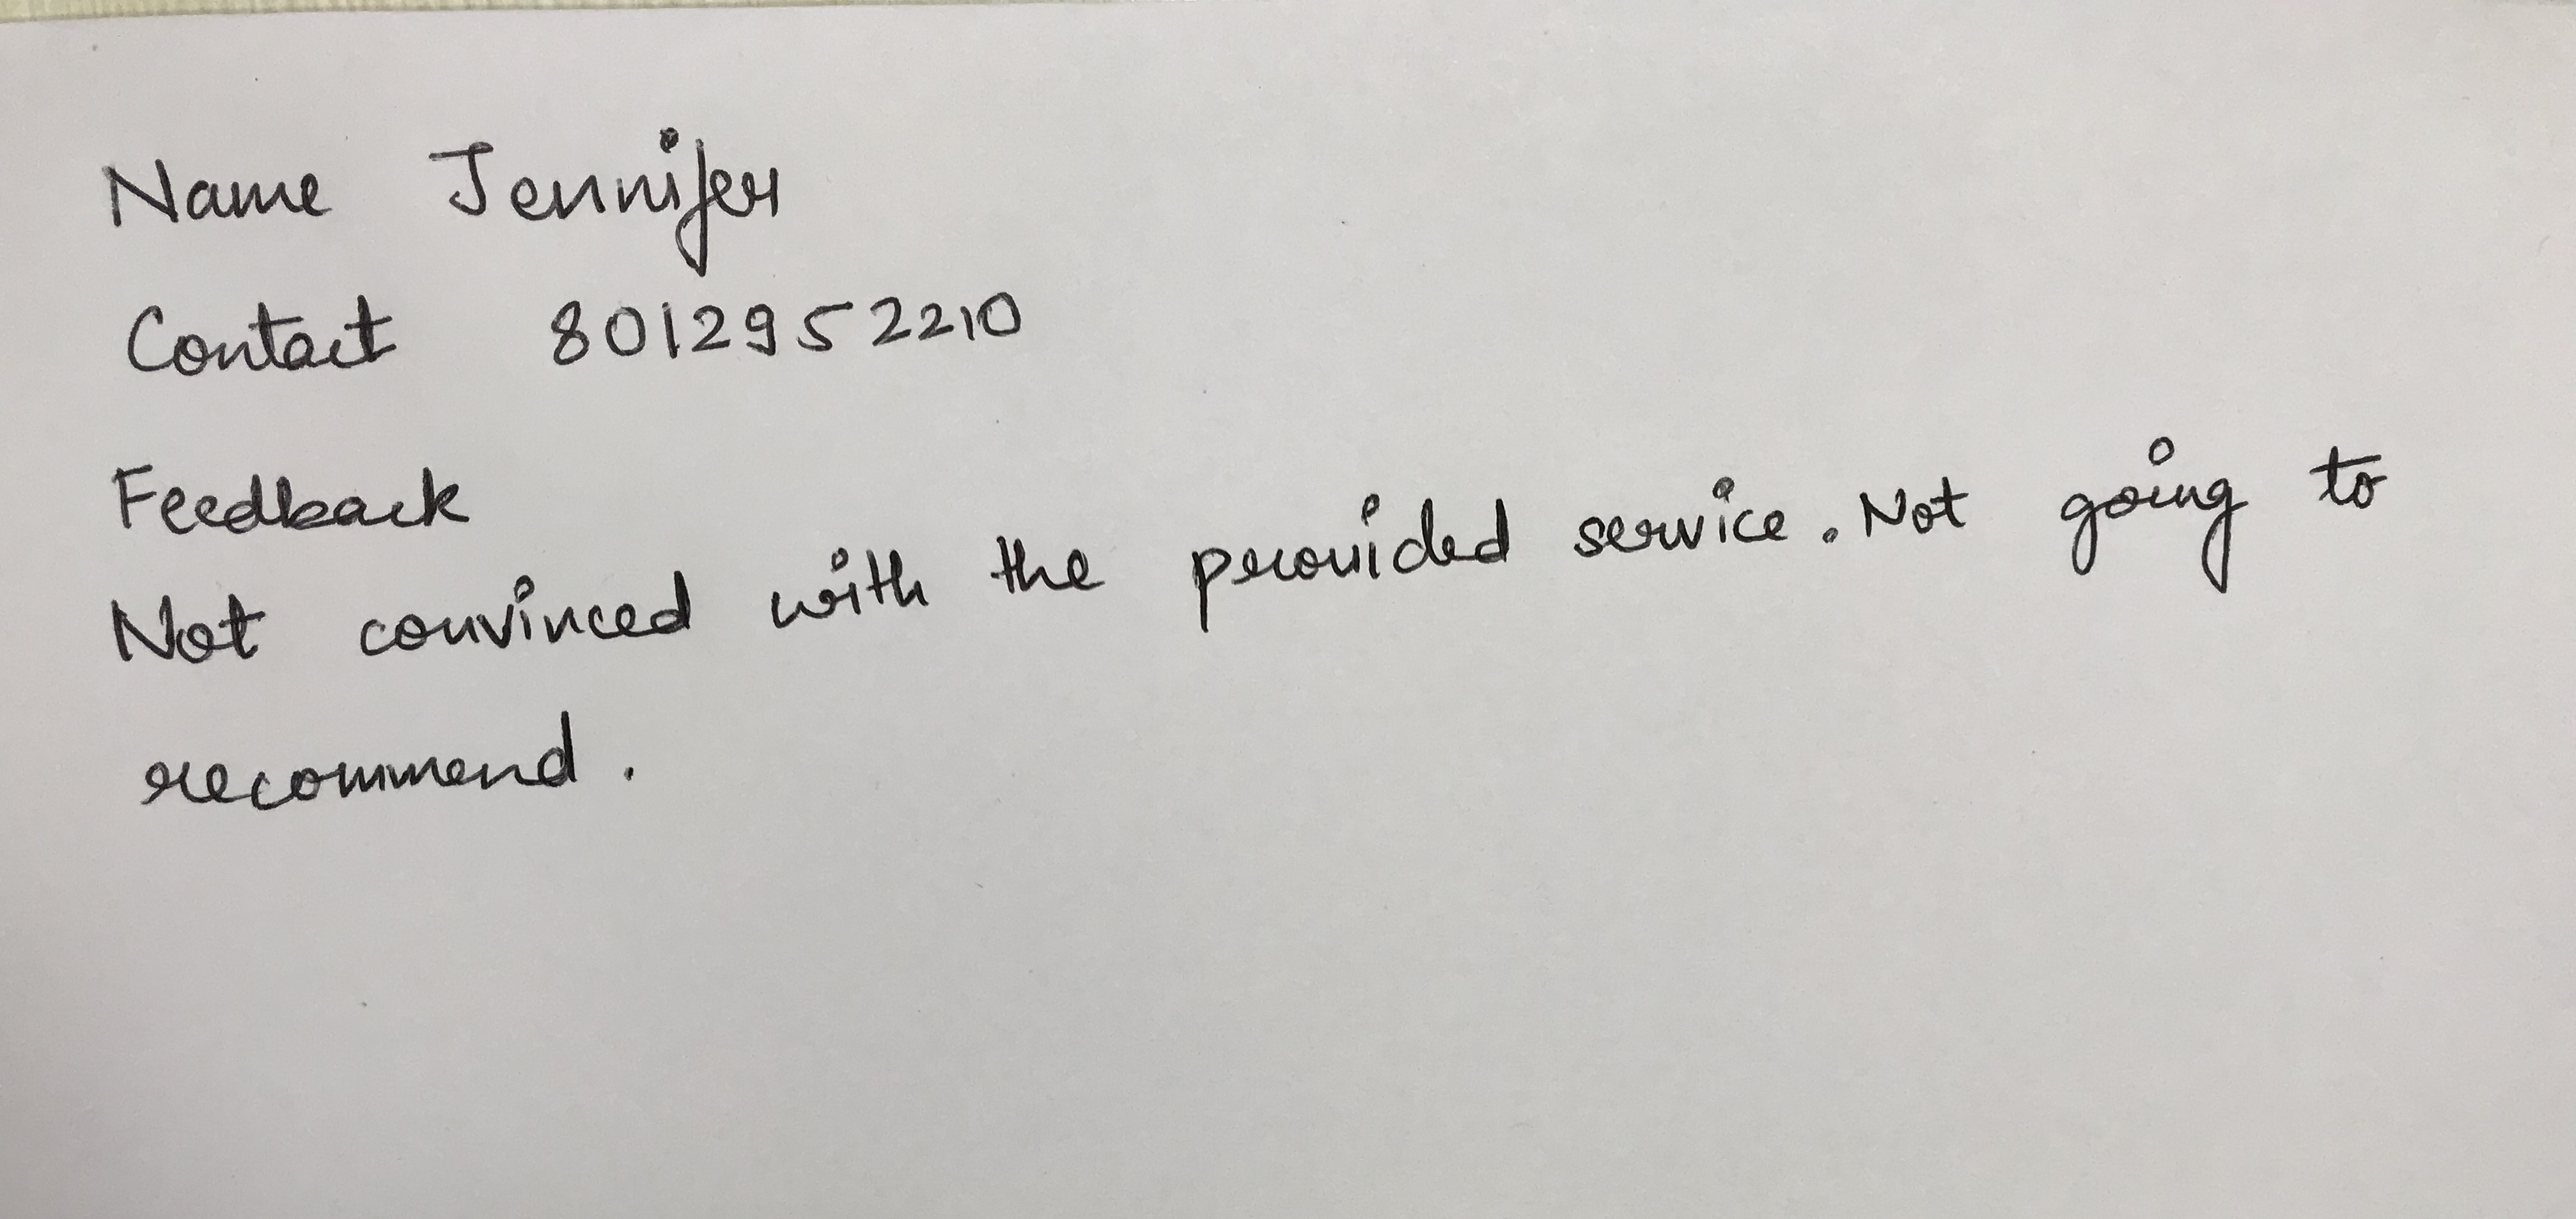 Name Jennifer
Contact 8012952210
Feedback
Not convinced with the provided service. Not going to
recommend.